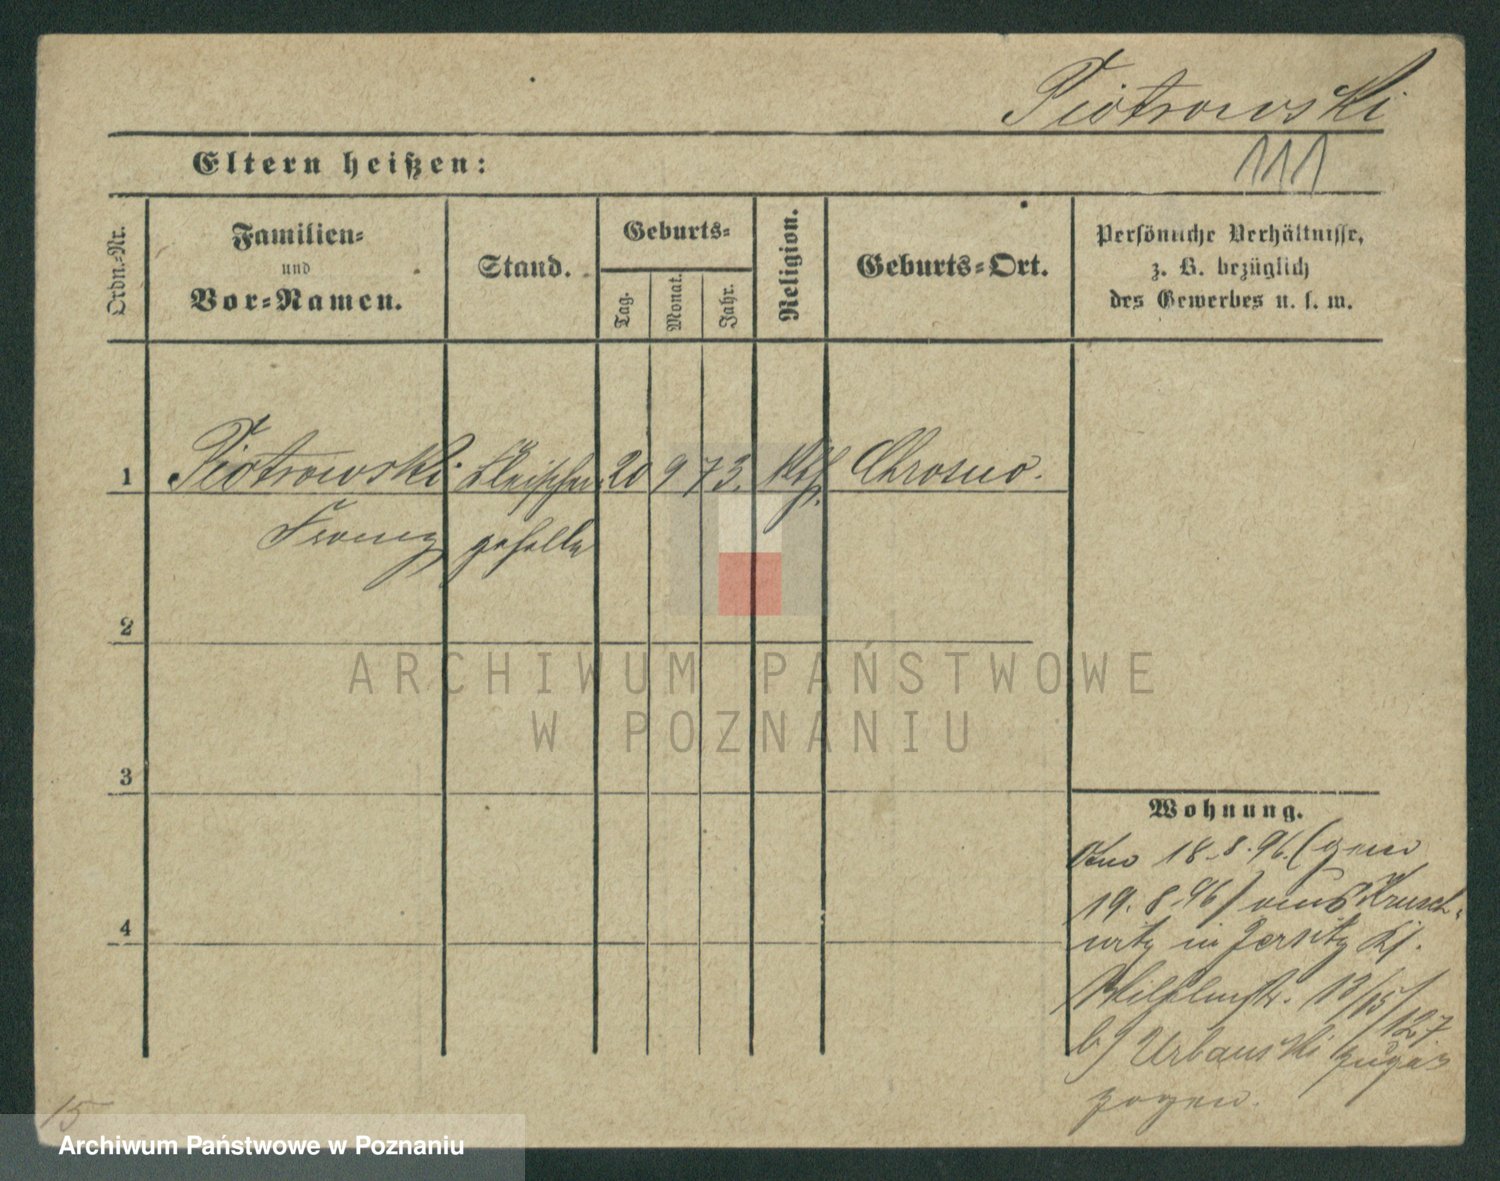 Piotrowski
Eltern heißen:
111
Ordn.-Nr.
Familien-
und
Vor-Namen.
Stand.
Geburts-
Tag.
Monat.
Jahr.
Religion.
Geburts-Ort.
Persönliche Verhältnisse,
z. B. bezüglich
des Gewerbes u. s. w.
1 Piotrowski Fleischer 20 9 73. kth. Chrosno.
Franz geselle
2
ARCHIWUM PAŃSTWOWE
W POZNANIU
3
Wohnung.
18.8.96. (gem
19.8.96) aus Krusch-
witz in Jersitz
Wilhelmstr. 13/15/
127
b/ Urbanski zuge
zogen.
4
15
Archiwum Państwowe w Poznaniu